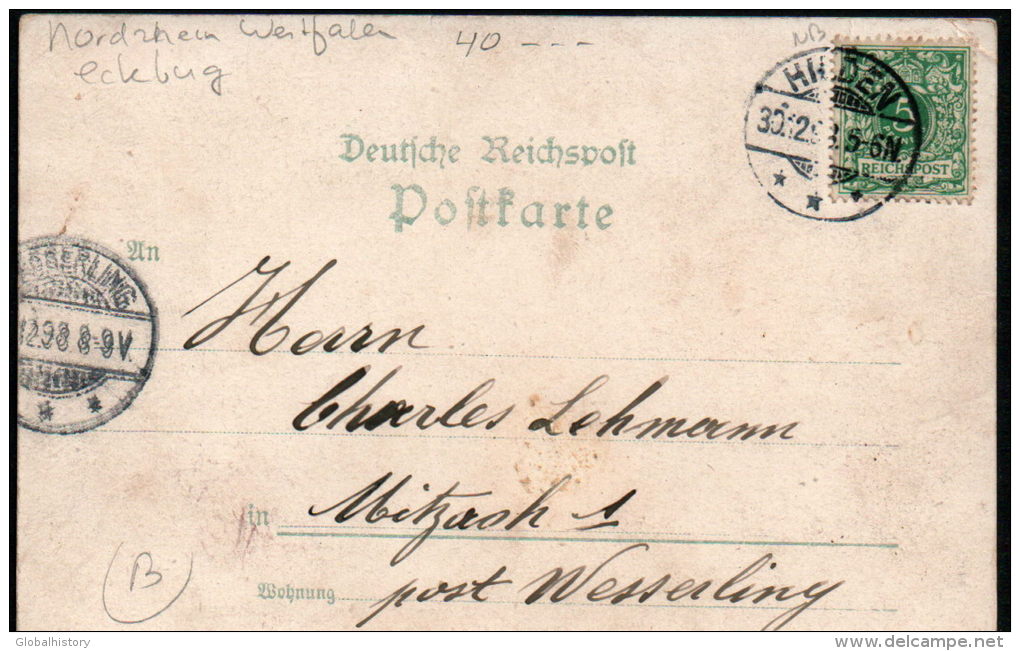 Nordrhein Westfalen
eckbug
40 ---
NB
HILDEN
5
30.12.98.5-6N.
REICHSPOST
Deutsche Reichspost
Postkarte
An
12.98 8-9V.
Herrn
Charles Lehmann
in Mitzach
post Wesserling
Wohnung
B
Globalhistory
www.delcampe.net